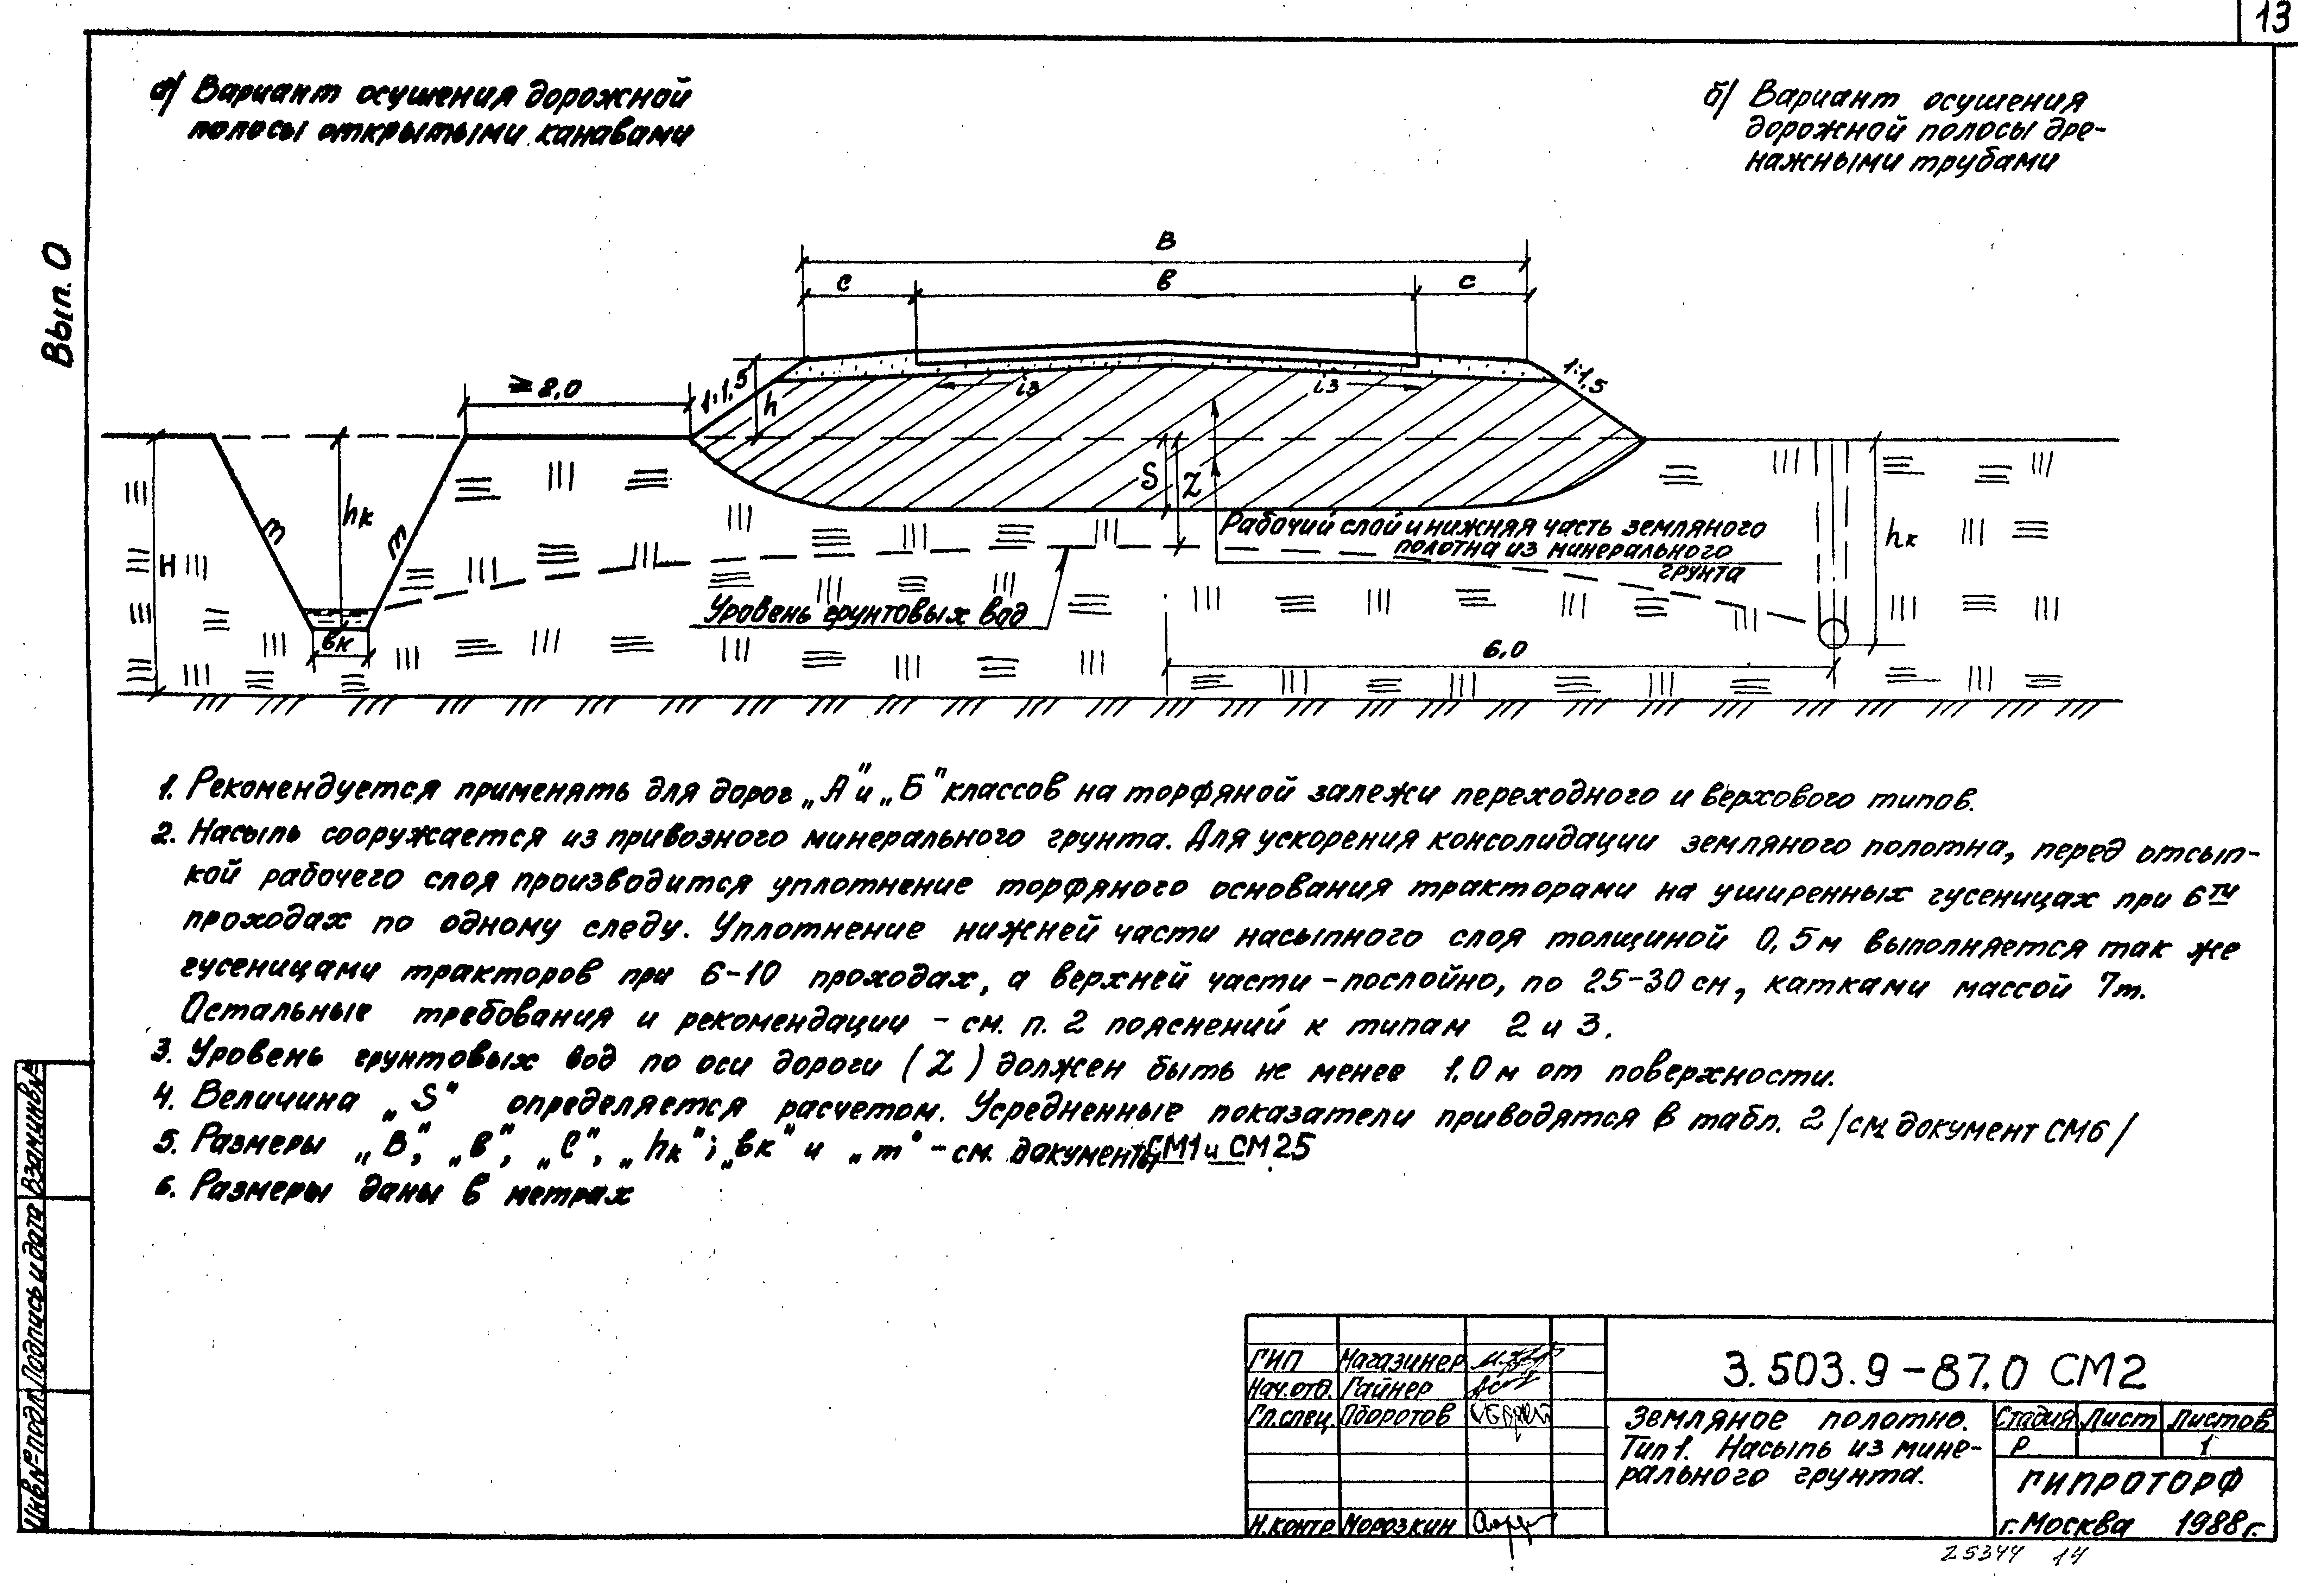 13
а) Вариант осушения дорожной
полосы открытыми канавами
б) Вариант осушения
дорожной полосы дре-
нажными трубами
Вып. 0
В
с в с
≥ 2,0
1:1,5
h
iз iз
1:1,5
S Z
H
m hк m
вк
Рабочий слой и нижняя часть земляного
полотна из минерального
грунта
hк
Уровень грунтовых вод
6,0
1. Рекомендуется применять для дорог „А" и „Б" классов на торфяной залежи переходного и верхового типов.
2. Насыпь сооружается из привозного минерального грунта. Для ускорения консолидации земляного полотна, перед отсып-
кой рабочего слоя производится уплотнение торфяного основания тракторами на уширенных гусеницах при 6ти
проходах по одному следу. Уплотнение нижней части насыпного слоя толщиной 0,5м выполняется так же
гусеницами тракторов при 6-10 проходах, а верхней части - послойно, по 25-30 см, катками массой 7т.
Остальные требования и рекомендации - см. п. 2 пояснений к типам 2 и 3.
3. Уровень грунтовых вод по оси дороги (Z) должен быть не менее 1,0м от поверхности.
4. Величина „S" определяется расчетом. Усредненные показатели приводятся в табл. 2 /см документ СМ6/
5. Размеры „В", „в", „С", „hк"; „вк" и „m" - см. документы СМ1 и СМ25
6. Размеры даны в метрах
Инв.№подл. Подпись и дата Взам.инв.№
ГИП Магазинер
Нач.отд. Гайнер
Гл.спец. Оборотов
Н.контр Морозкин
3.503.9-87.0 СМ2
Земляное полотно.
Тип 1. Насыпь из мине-
рального грунта.
Стадия Лист Листов
Р 1
ГИПРОТОРФ
г. Москва 1988г.
25344 14